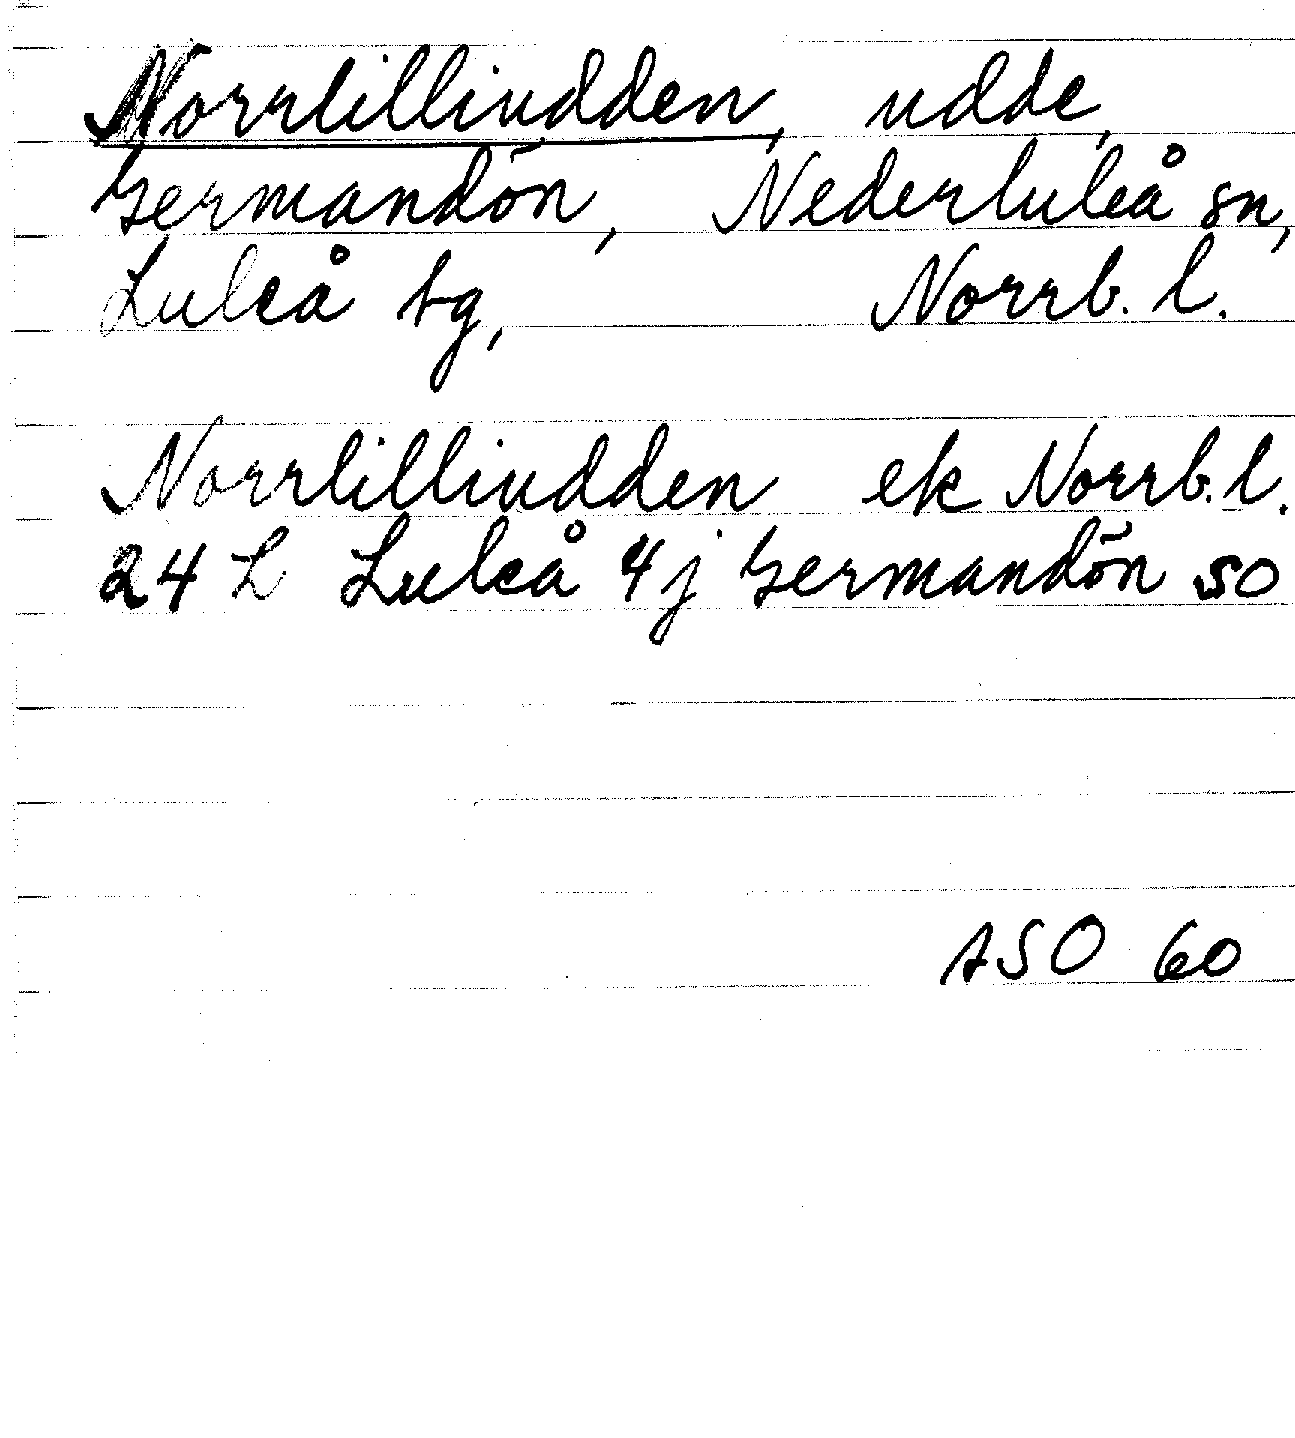 Norrlilliudden, udde,
Germandön, Nederluleå sn,
Luleå tg, Norrb. l.
Norrlilliudden ek Norrb. l.
24 L Luleå 4j Germandön SO
ASO 60